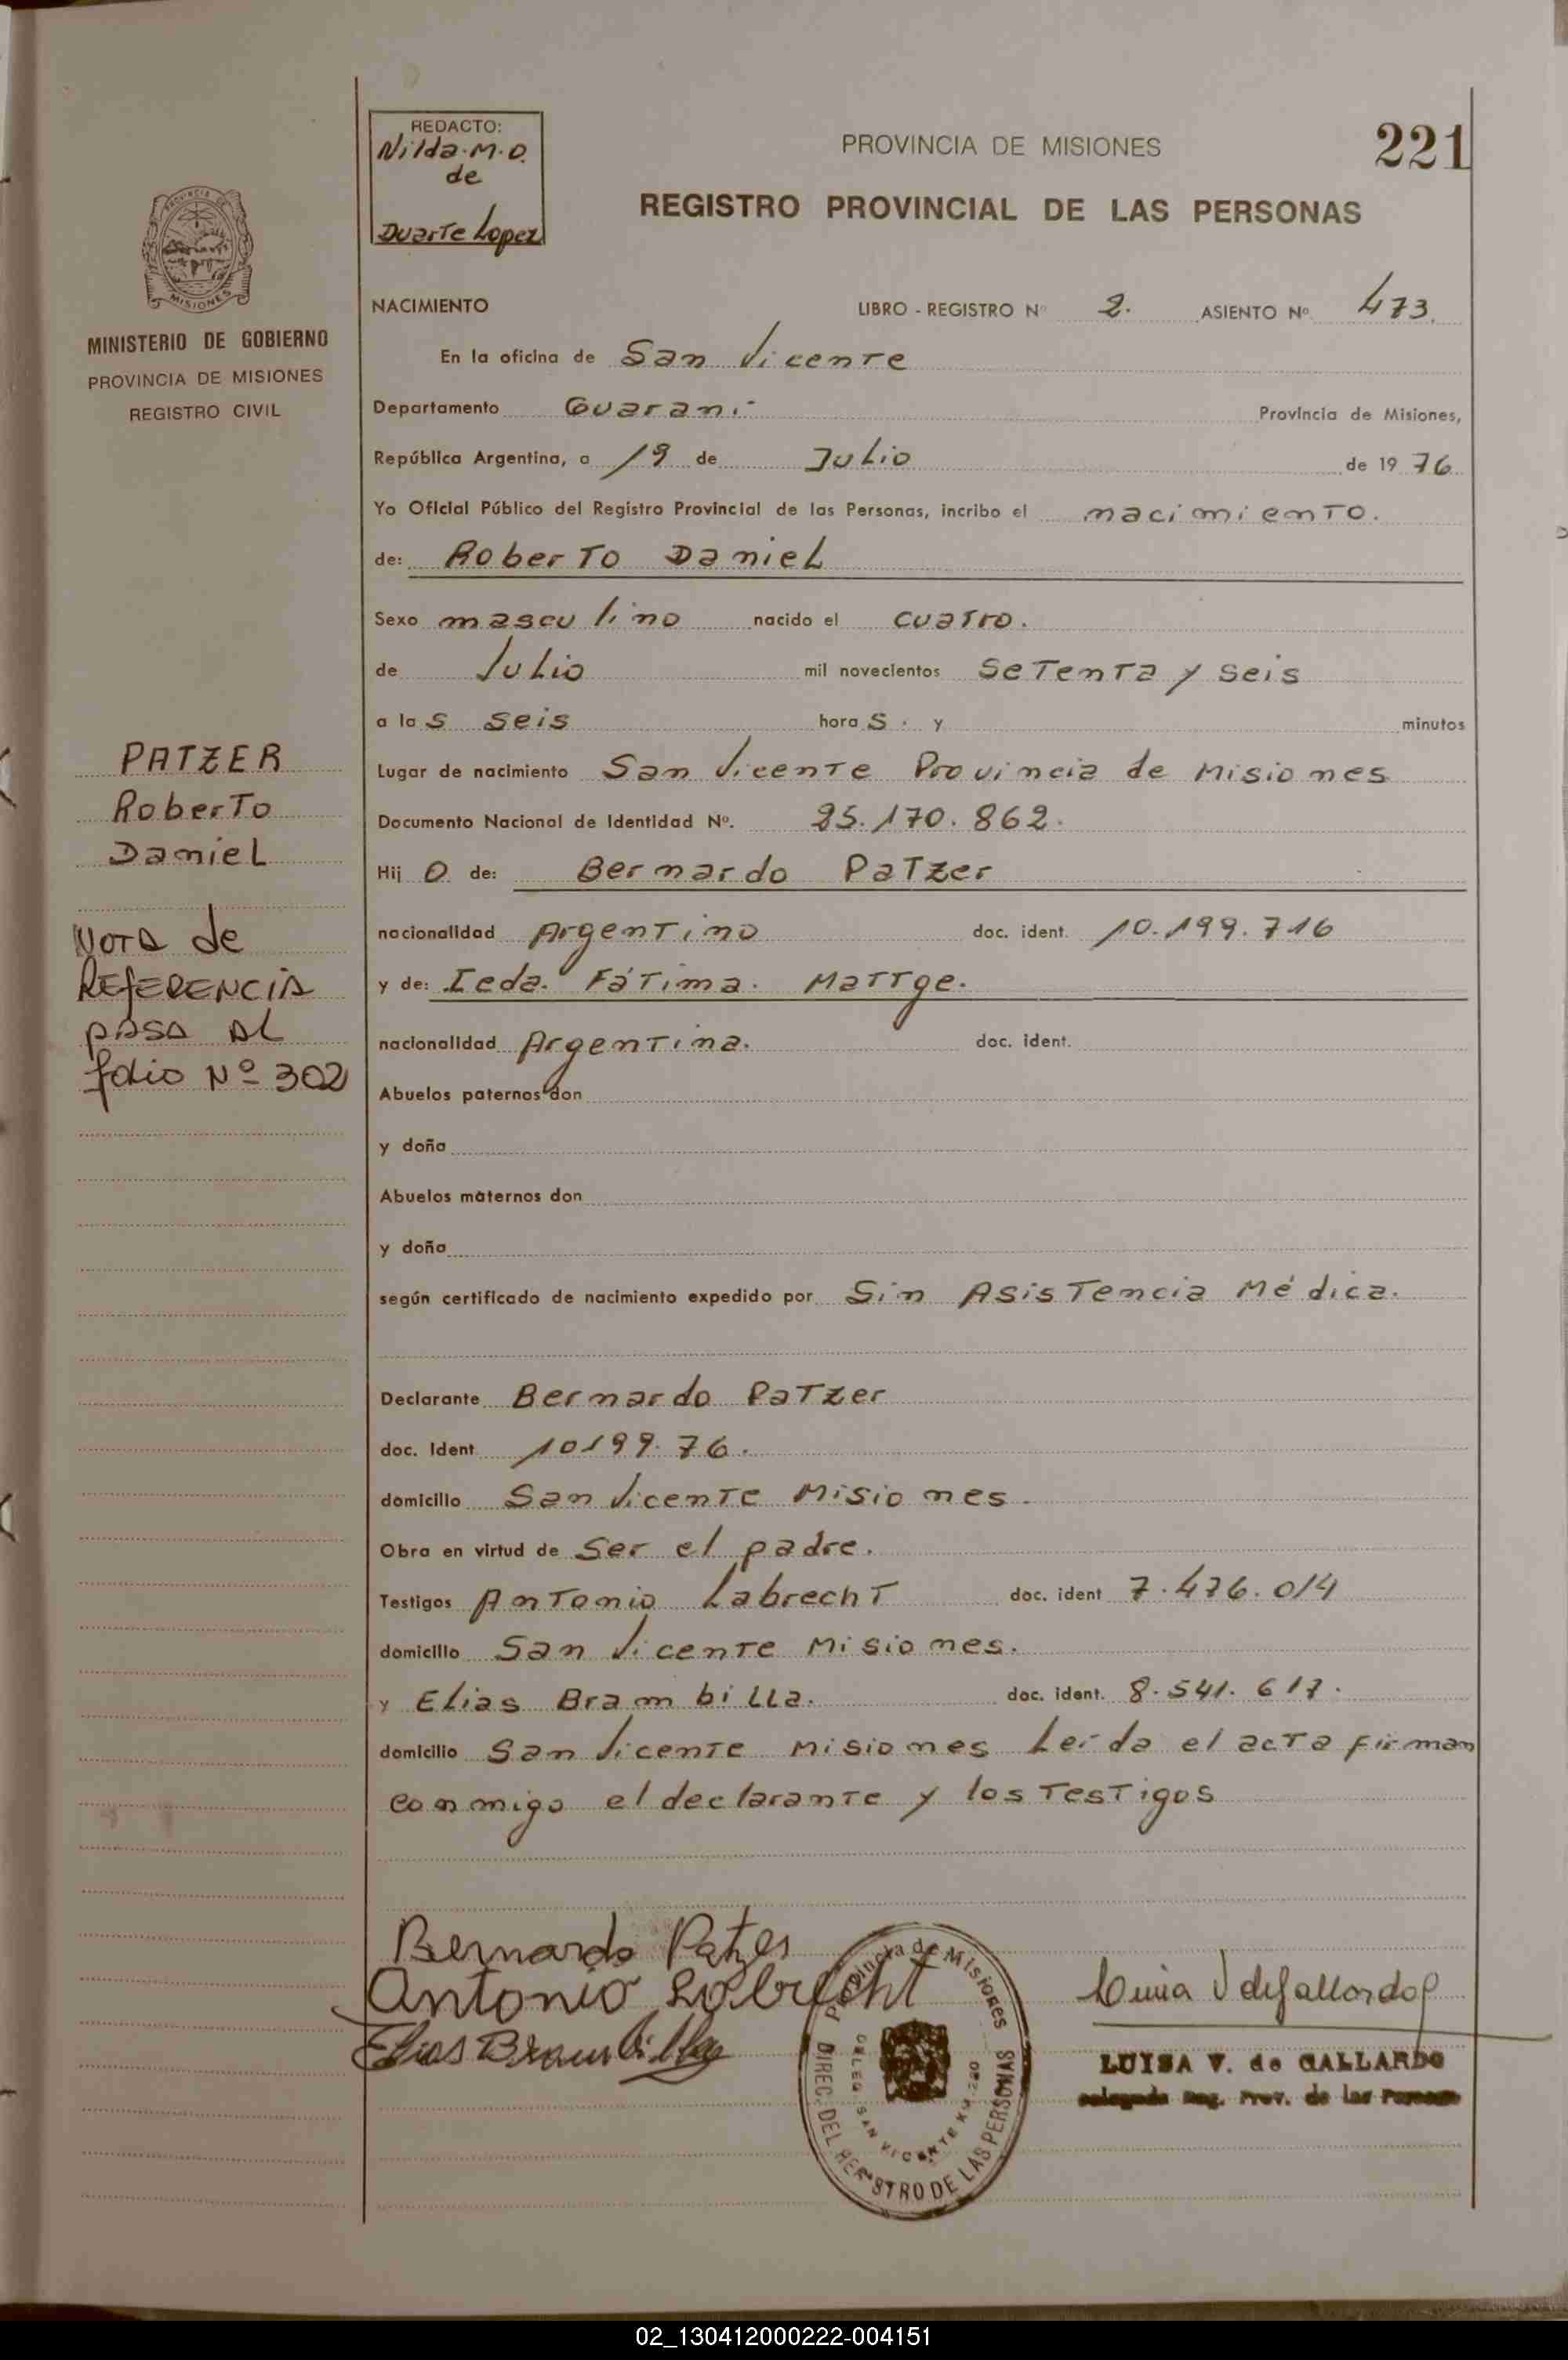 221
REDACTO:
Nilda. M. O.
de
Duarte Lopez
PROVINCIA DE MISIONES
REGISTRO PROVINCIAL DE LAS PERSONAS
MISIONES
MINISTERIO DE GOBIERNO
PROVINCIA DE MISIONES
REGISTRO CIVIL
NACIMIENTO LIBRO - REGISTRO Nº 2. ASIENTO Nº 473.
En la oficina de San Vicente
Departamento Guaraní Provincia de Misiones,
República Argentina, a 19 de Julio de 19 76
Yo Oficial Público del Registro Provincial de las Personas, incribo el nacimiento.
de: Roberto Daniel
Sexo masculino nacido el cuatro.
de Julio mil novecientos setenta y seis
a las seis horas. y minutos
Lugar de nacimiento San Vicente Provincia de Misiones
Documento Nacional de Identidad Nº. 25.170.862.
Hijo de: Bernardo Patzer
nacionalidad Argentino doc. ident. 10.199.716
y de: Ieda. Fátima. Mattge.
nacionalidad Argentina. doc. ident.
Abuelos paternos don
y doña
Abuelos maternos don
y doña
según certificado de nacimiento expedido por Sin Asistencia Médica.
Declarante Bernardo Patzer
doc. Ident 10199.76.
domicilio San Vicente Misiones.
Obra en virtud de ser el padre.
Testigos Antonio Labrecht doc. ident 7.476.014
domicilio San Vicente Misiones.
y Elias Brambilla. doc. ident. 8.541.617.
domicilio San Vicente Misiones Leída el acta firman
conmigo el declarante y los testigos
PATZER
Roberto
Daniel
NOTA de
REFERENCIA
PASA AL
folio Nº 302
Bernardo Patzer
Antonio Labrecht
Elias Brambilla
Provincia de Misiones
DIREC. DEL REGISTRO DE LAS PERSONAS
DELEG. SAN VICENTE
Luisa V de Gallardo
LUISA V. de GALLARDO
Delegada Reg. Prov. de las Personas
02_130412000222-004151